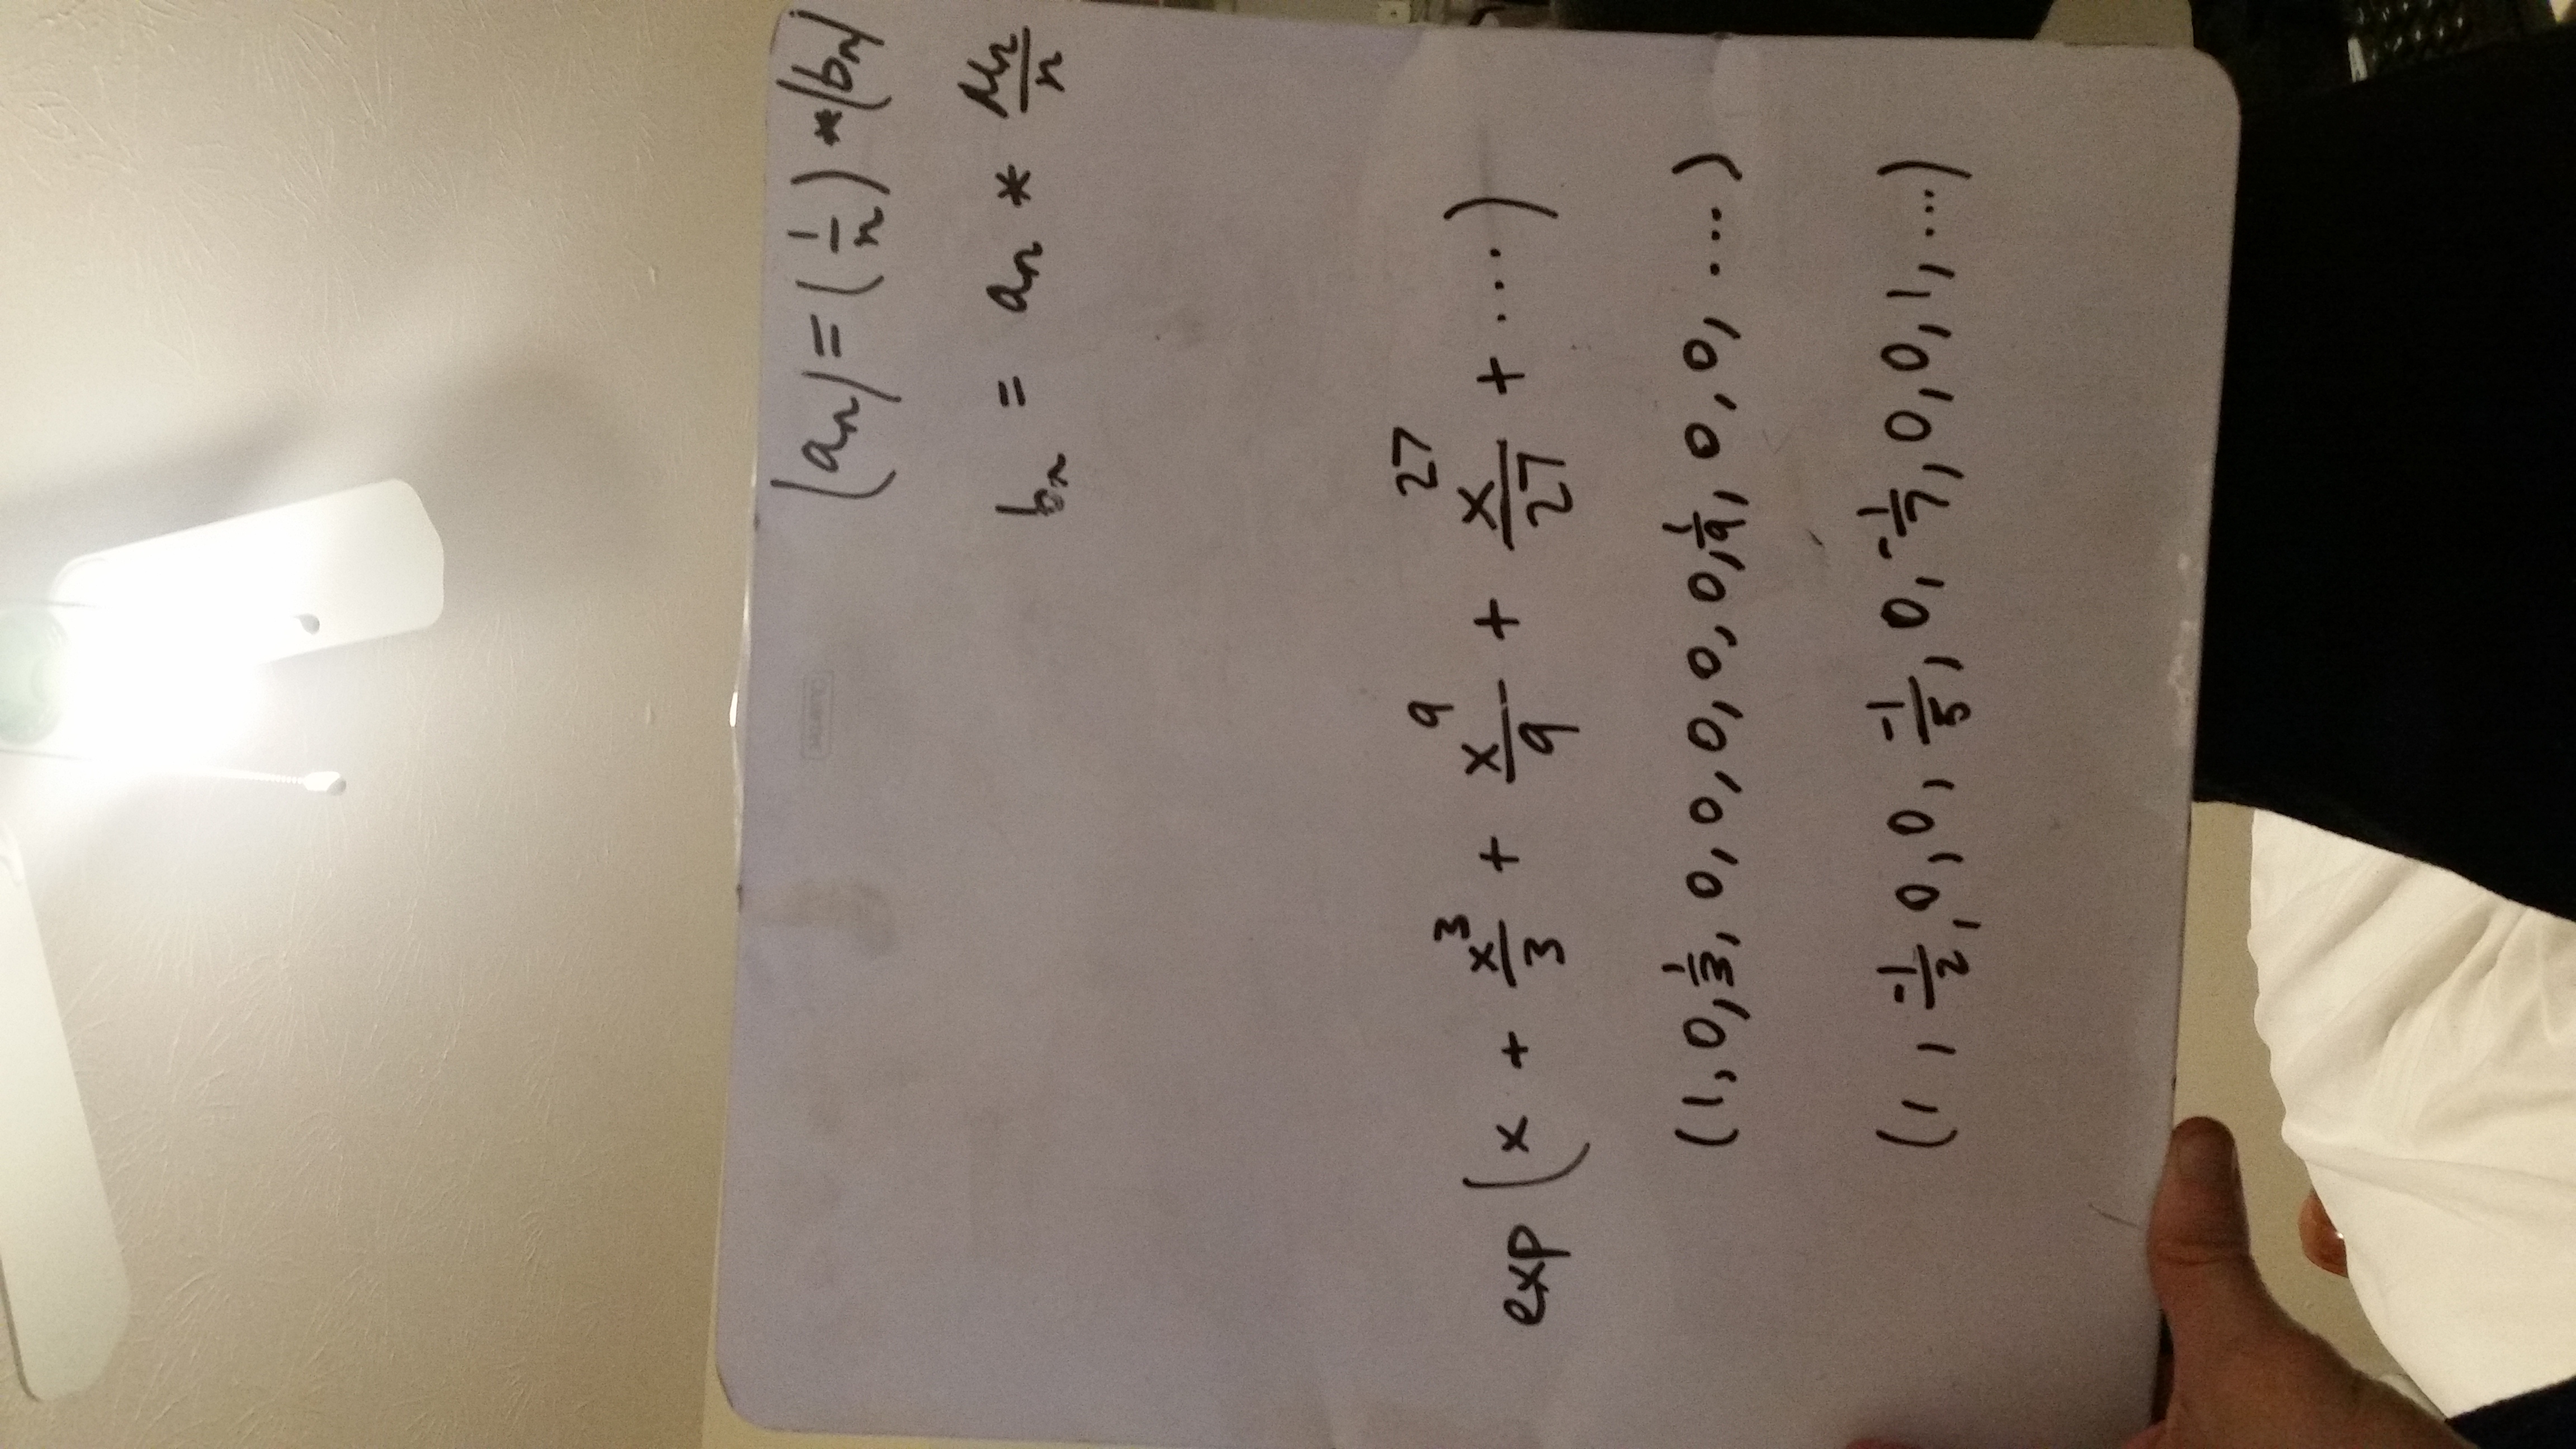 (aₙ) = (1/n) * (bₙ)
bₙ = aₙ * μₙ/n
exp(x + x³/3 + x⁹/9 + x²⁷/27 + ···)
(1, 0, 1/3, 0, 0, 0, 0, 0, 1/9, 0, 0, ...)
(1, -1/2, 0, 0, -1/5, 0, -1/7, 0, 0, 1, ...)